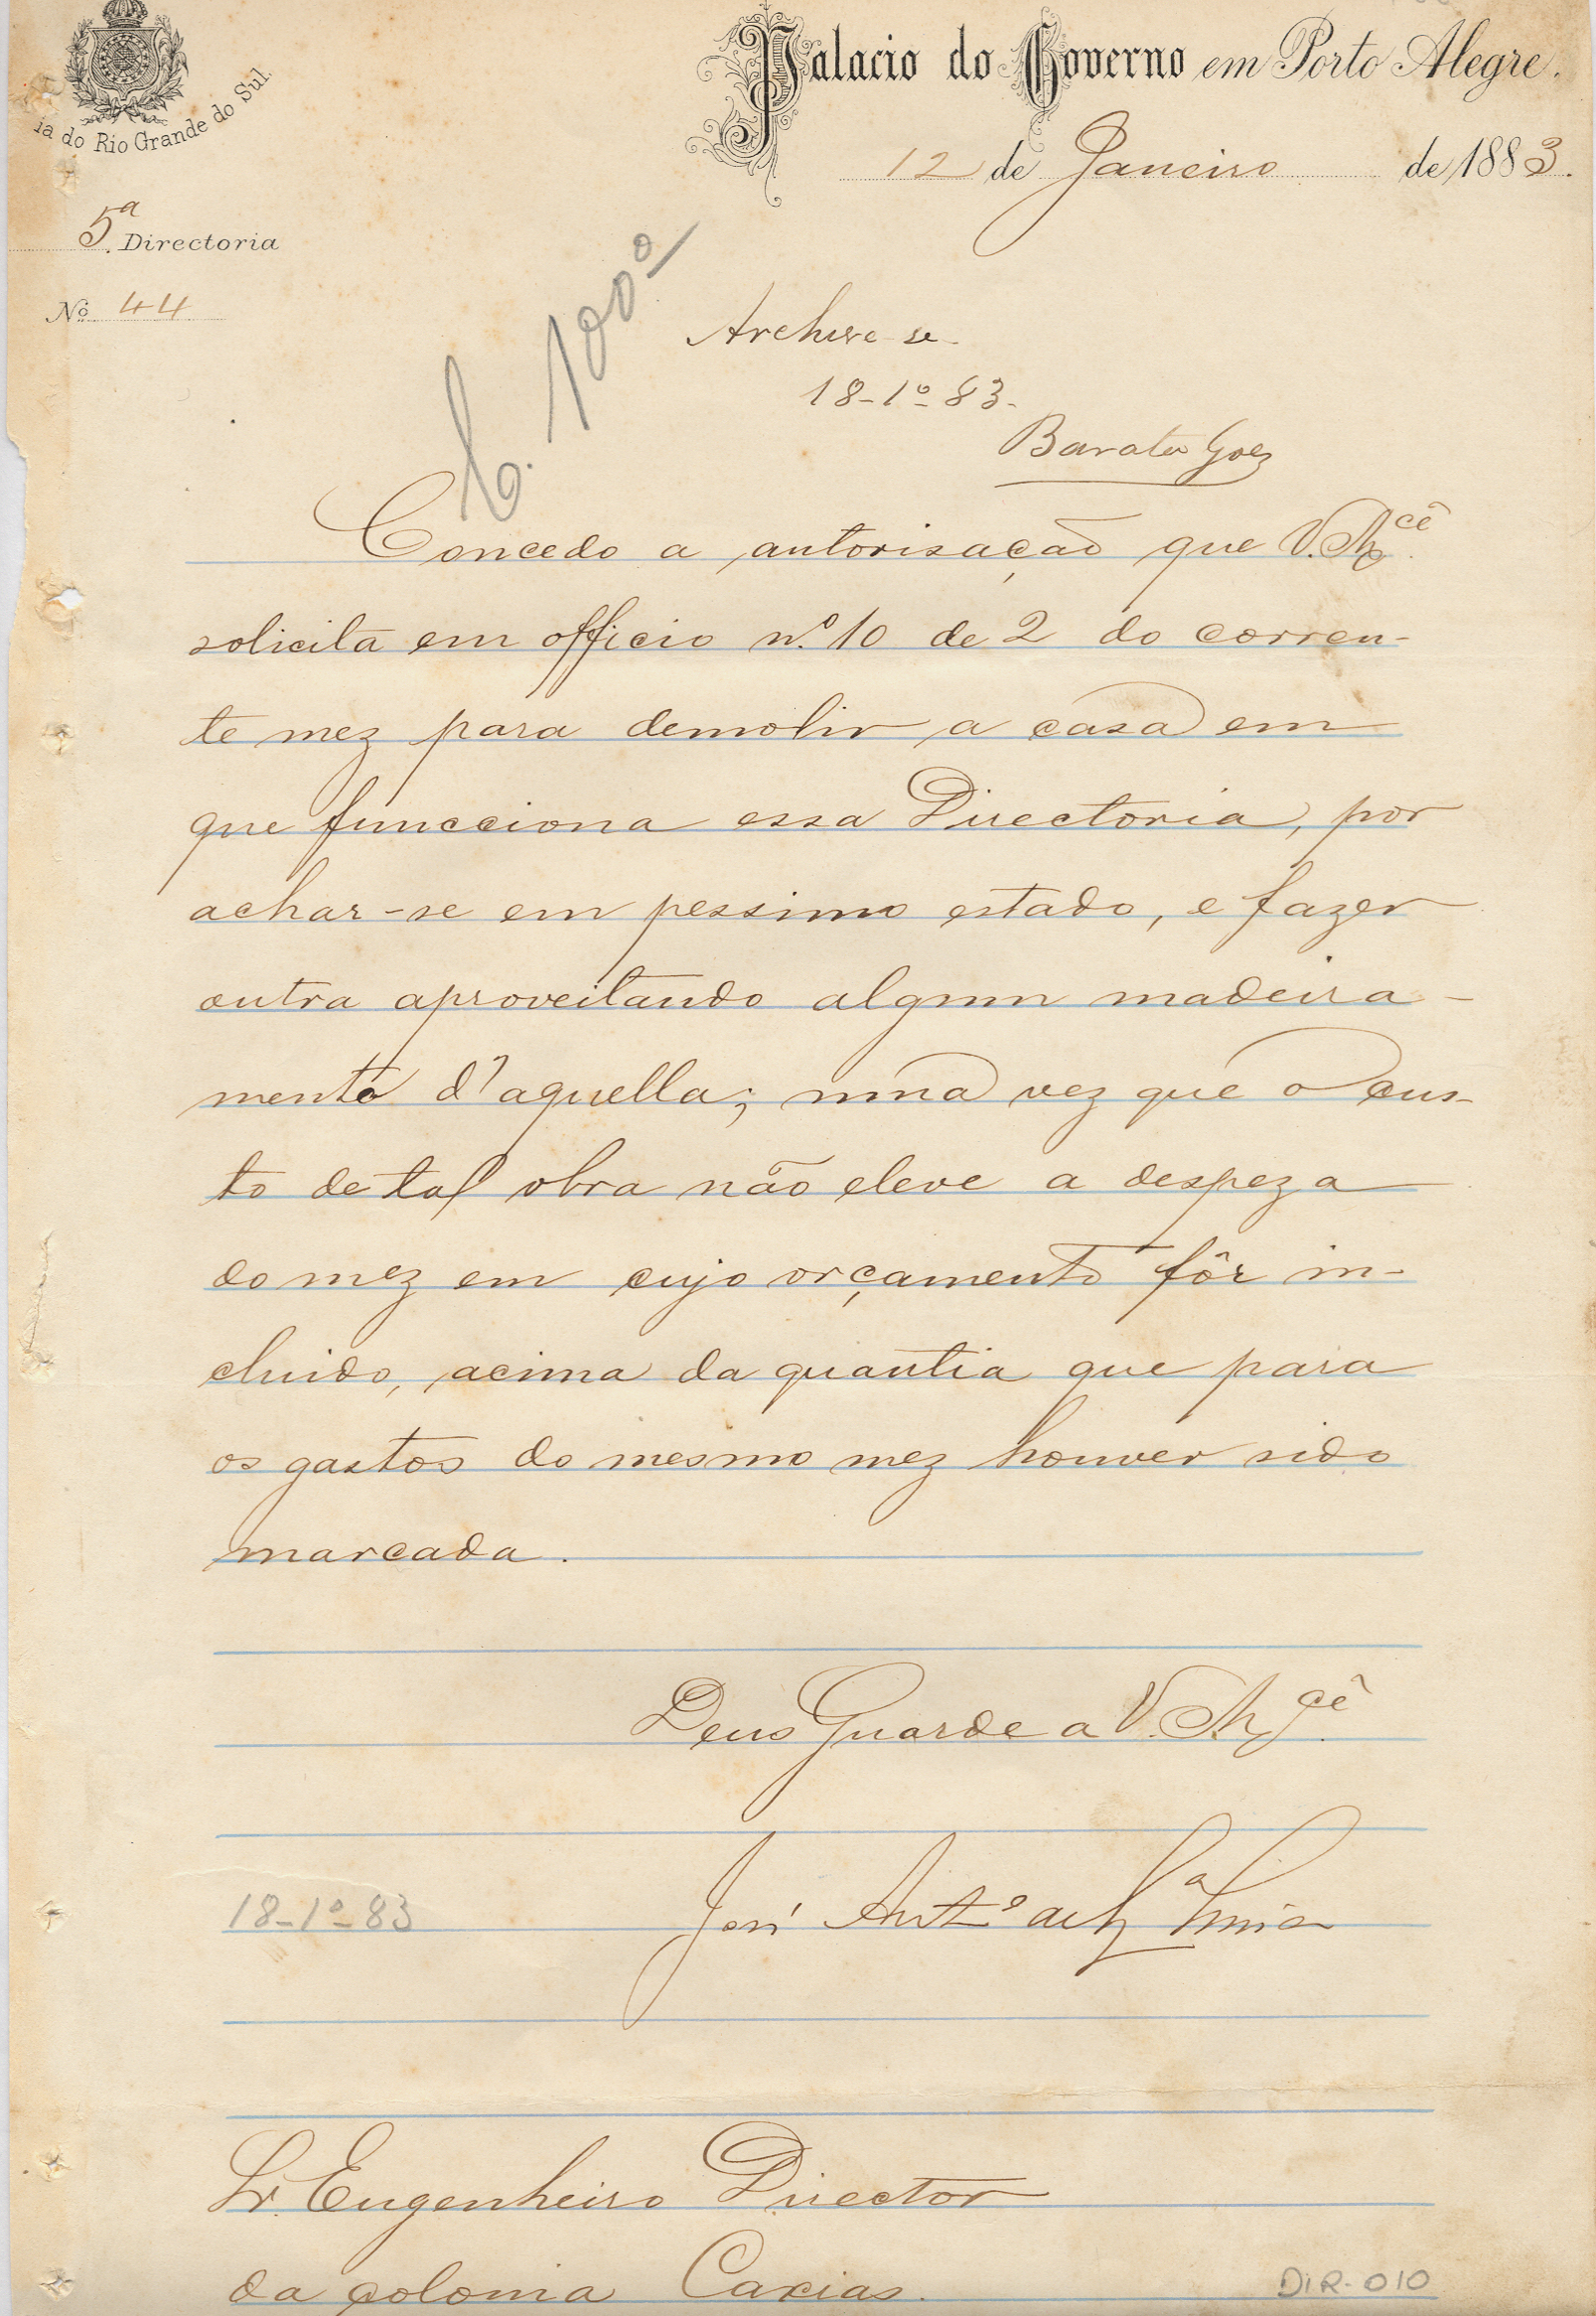 Palacio do Governo em Porto Alegre.
ia do Rio Grande do Sul
12 de Janeiro de 1883.
5ª Directoria
Nº 44
C. 100º
Archive-se
18-1º-83-
Barata Goes
Concedo a autorisação que V. Mcê
solicita em officio nº 10 de 2 do corren-
te mez para demolir a casa em
que funcciona essa Directoria, por
achar-se em pessimo estado, e fazer
outra aproveitando algum madeira-
mento d'aquella; uma vez que o cus-
to de tal obra não eleve a despeza
do mez em cujo orçamento fôr in-
cluido, acima da quantia que para
os gastos do mesmo mez houver sido
marcada.
Deus Guarde a V. Mcê
José Antº de
18-1º-83
Sr. Engenheiro Director
da colonia Caxias.
DIR-010